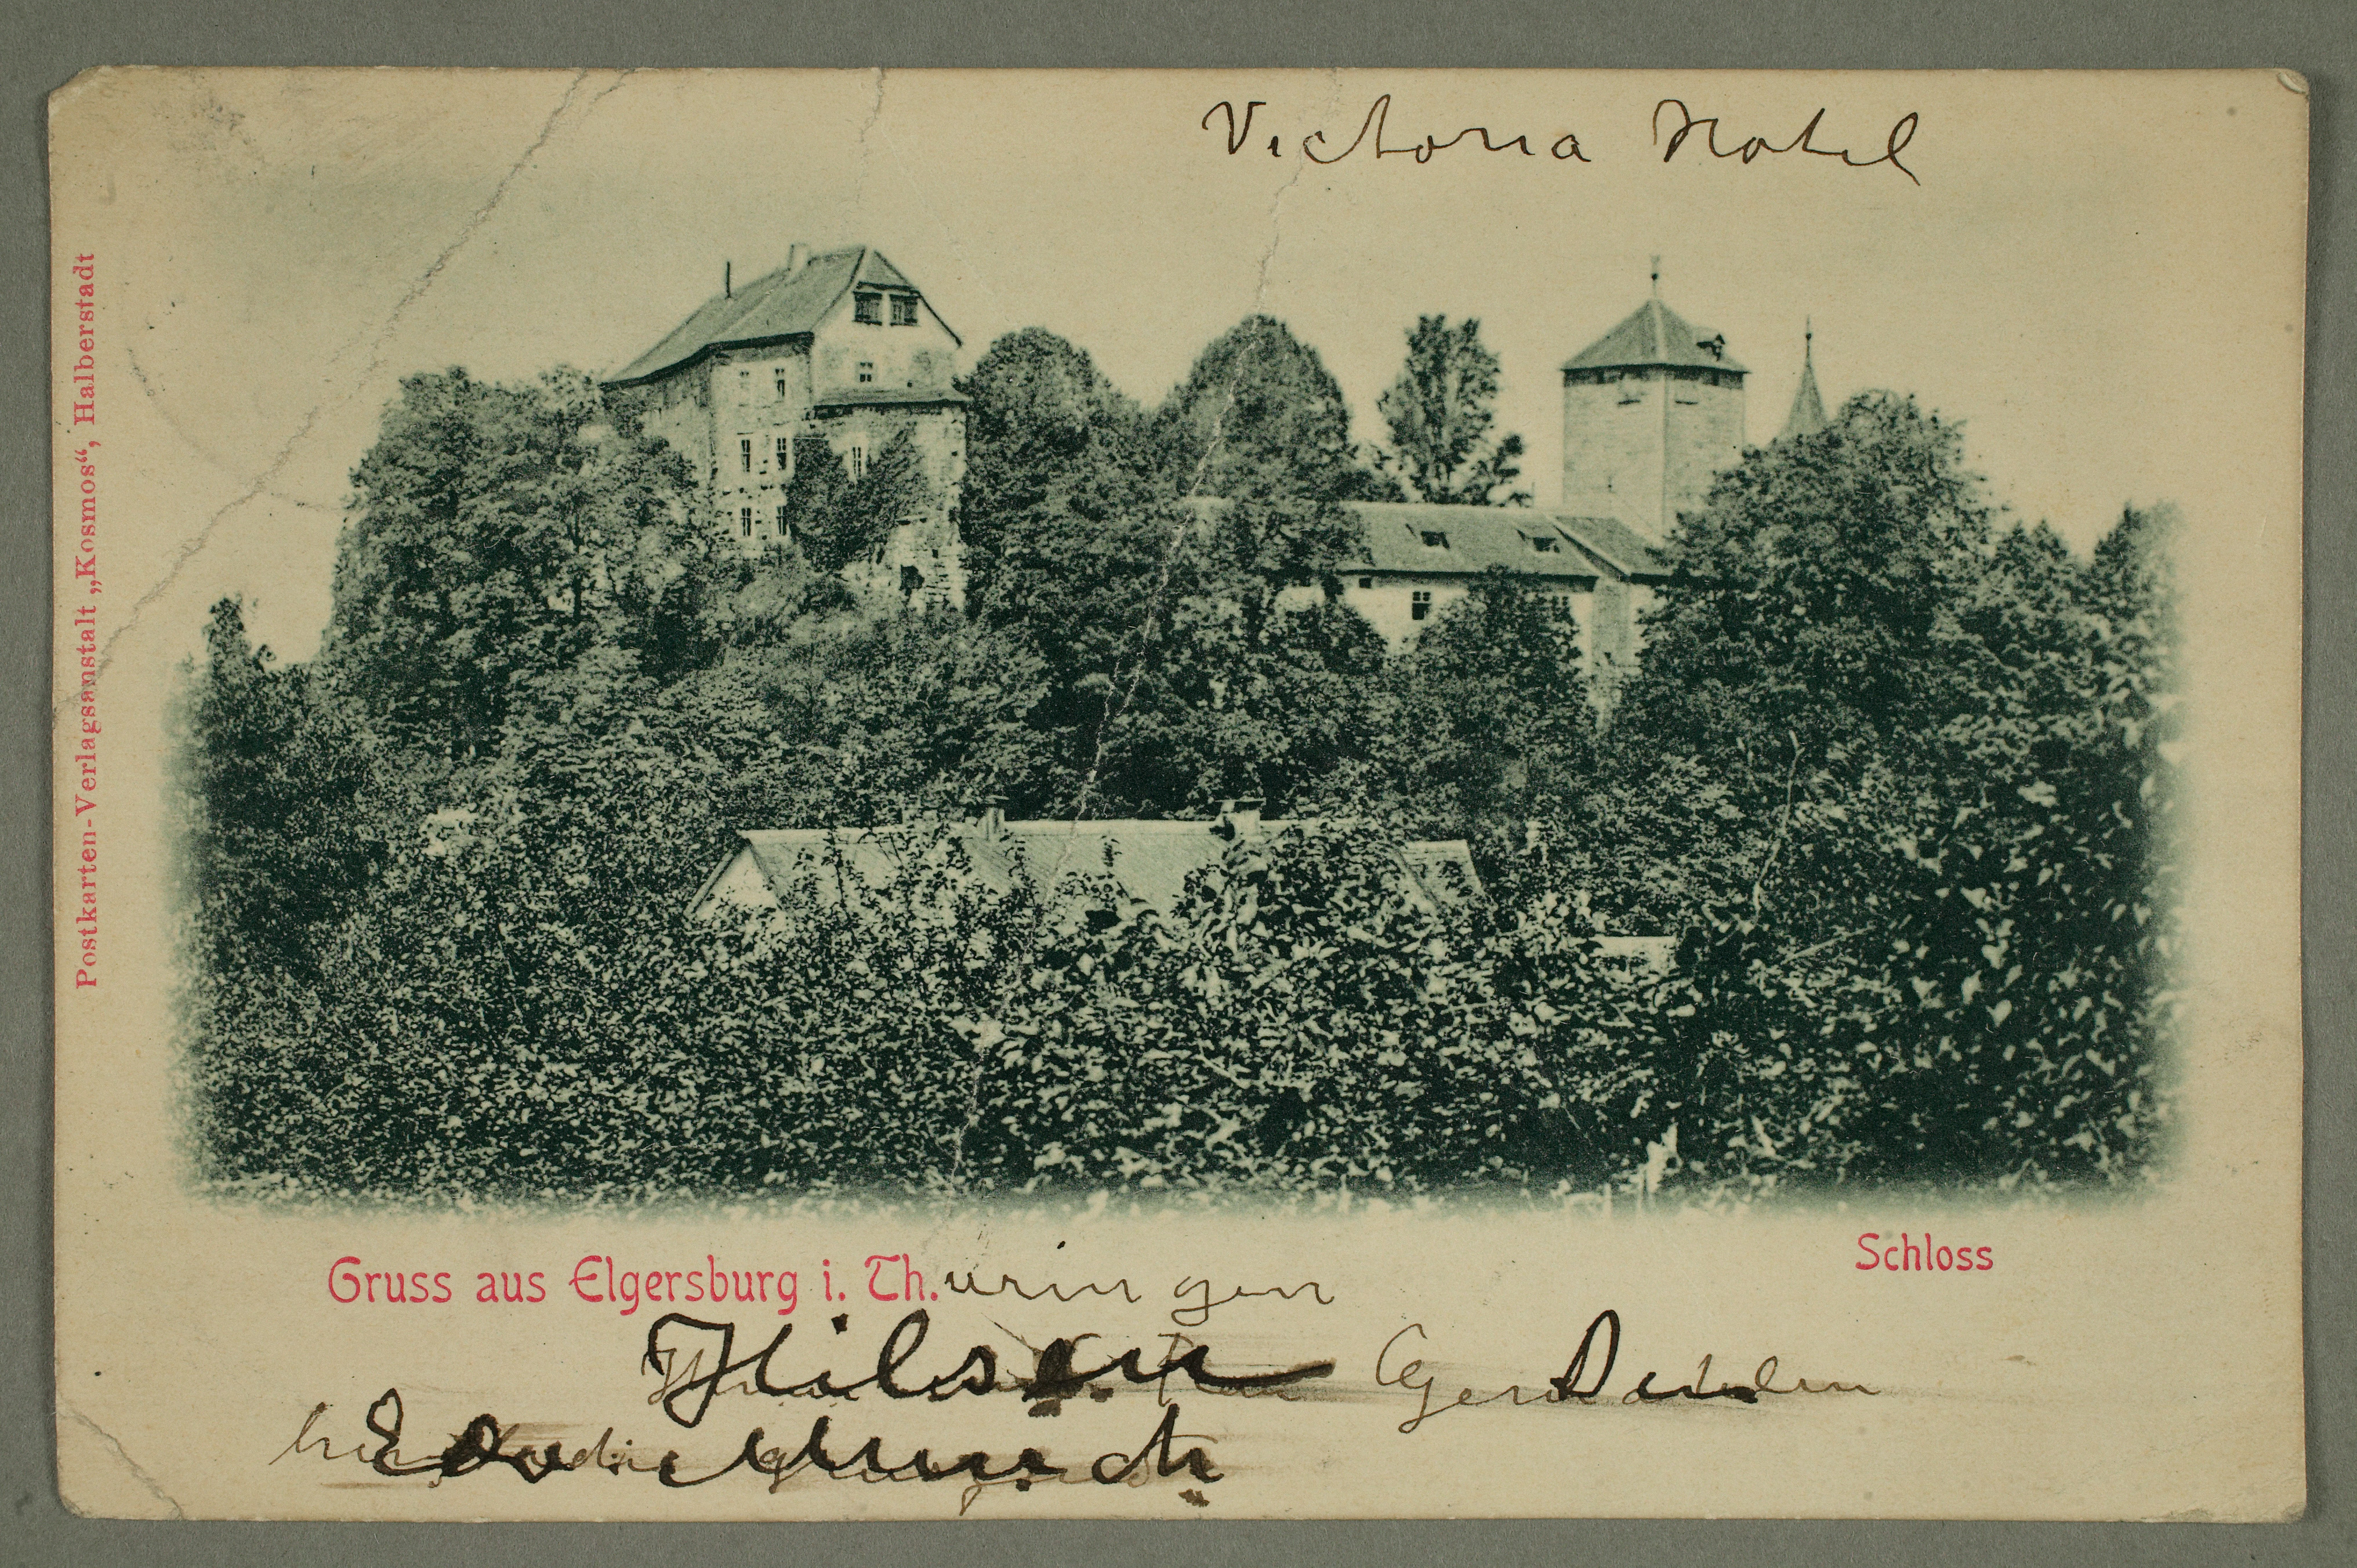 Victoria Hotel
Postkarten-Verlagsanstalt „Kosmos“, Halberstadt
Schloss
Gruss aus Elgersburg i. Th.uringen
Hilsen
Edv. Munch